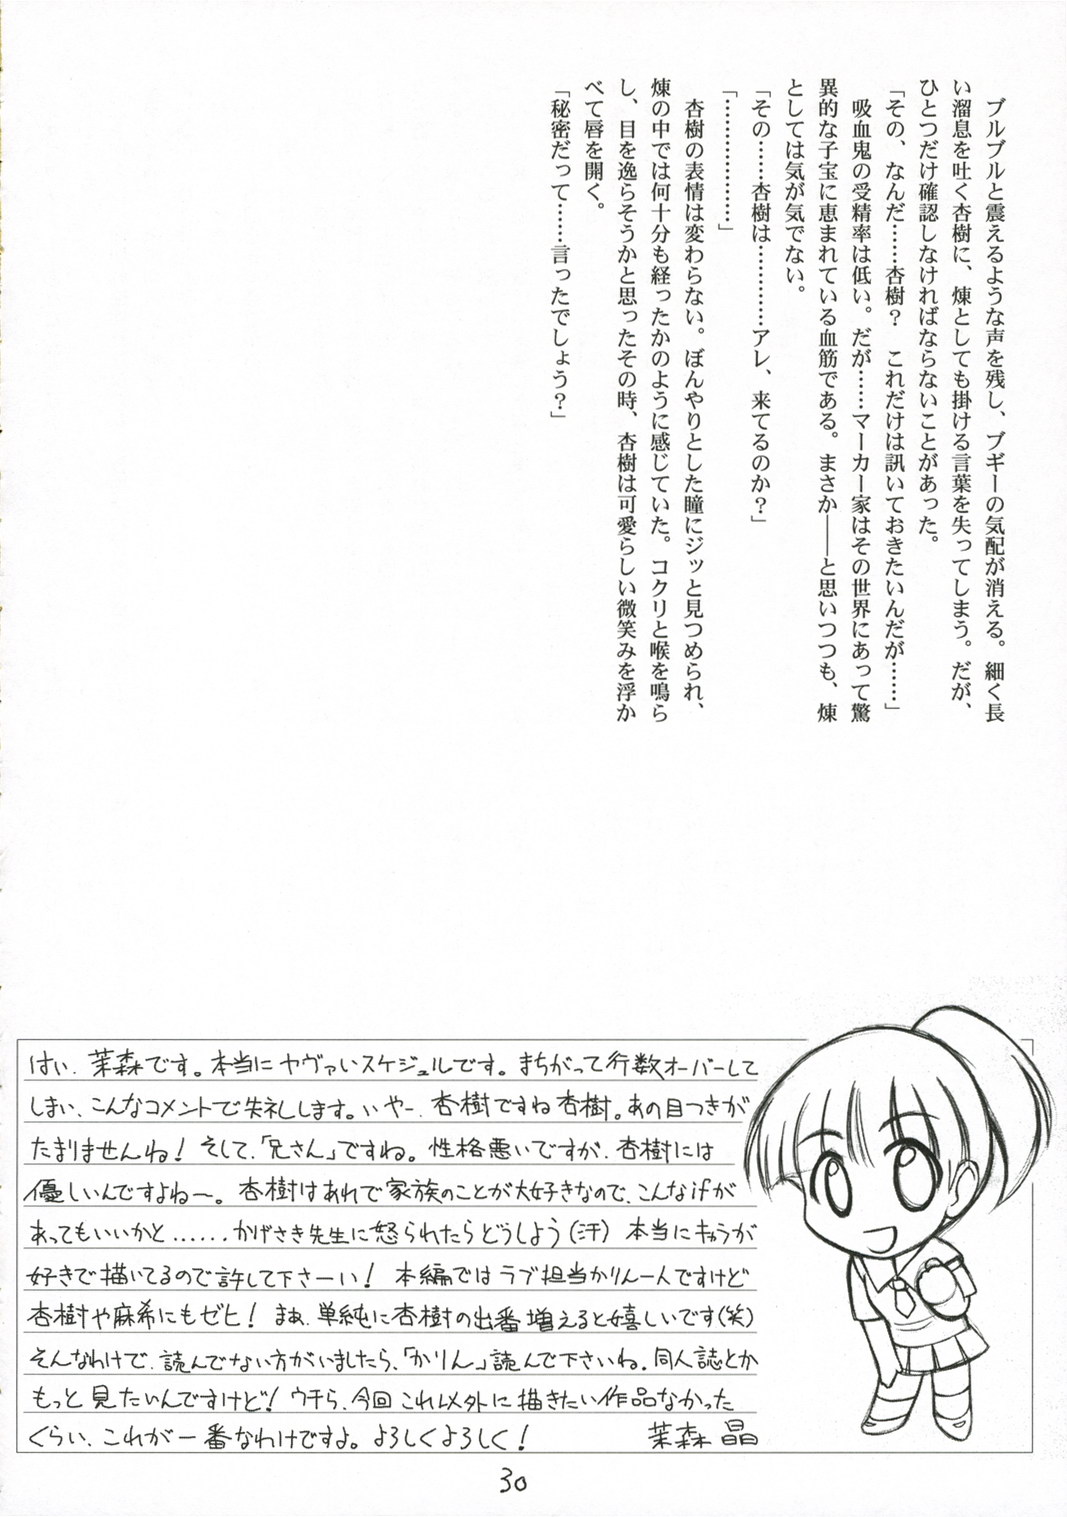 ブルブルと震えるような声を残し、ブギーの気配が消える。細く長
い溜息を吐く杏樹に、煉としても掛ける言葉を失ってしまう。だが、
ひとつだけ確認しなければならないことがあった。
「その、なんだ……杏樹？　これだけは訊いておきたいんだが……」
吸血鬼の受精率は低い。だが……マーカー家はその世界にあって驚
異的な子宝に恵まれている血筋である。まさか――と思いつつも、煉
としては気が気でない。
「その……杏樹は…………アレ、来てるのか？」
「………………」
杏樹の表情は変わらない。ぼんやりとした瞳にジッと見つめられ、
煉の中では何十分も経ったかのように感じていた。コクリと喉を鳴ら
し、目を逸らそうかと思ったその時、杏樹は可愛らしい微笑みを浮か
べて唇を開く。
「秘密だって……言ったでしょう？」
はい、茉森です。本当にヤヴァいスケジュルです。まちがって行数オーバーして
しまい、こんなコメントで失礼します。いやー、杏樹ですね杏樹。あの目つきが
たまりませんね！そして、「兄さん」ですね。性格悪いですが、杏樹には
優しいんですよね〜。杏樹はあれで家族のことが大好きなので、こんなifが
あってもいいかと……かげさき先生に怒られたらどうしよう（汗）本当にキャラが
好きで描いてるので許して下さーい！本編ではラブ担当かりん一人ですけど
杏樹や麻希にもゼヒ！まぁ、単純に杏樹の出番増えると嬉しいです（笑）
そんなわけで、読んでない方がいましたら、「かりん」読んで下さいね。同人誌とか
もっと見たいんですけど！ウチら、今回これ以外に描きたい作品なかった
くらい、これが一番なわけですよ。よろしくよろしく！
茉森 晶
30